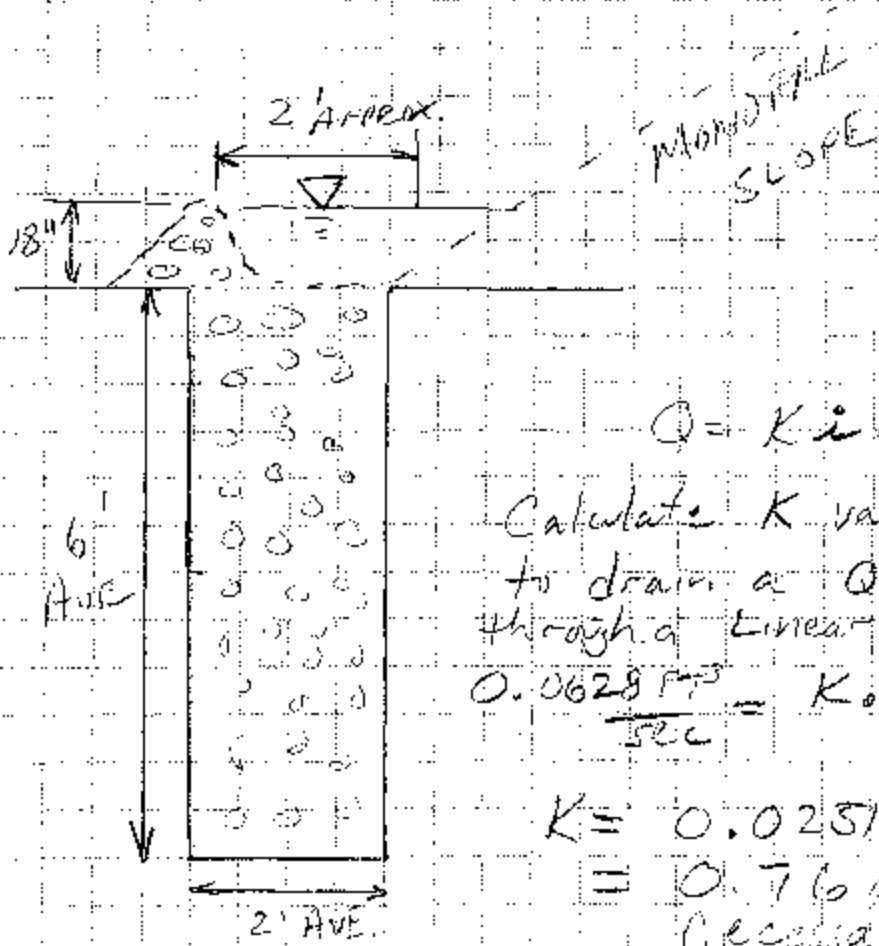 2' APPROX.
MONOFILL
SLOPE
18"
Q = K i
Calculate K va
to drain a Q
through a Linear
6'
AVE
0.0628 FT³/sec = K.
K = 0.0251
= 0.76
2' AVE.